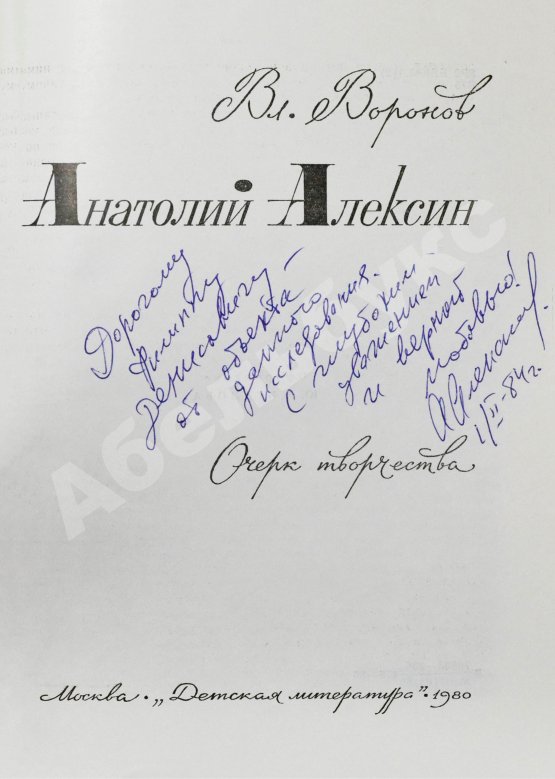 Вл. Воронов
Анатолий Алексин
Дорогому
Филиппу
Денисовичу –
от объекта
данного
исследования.
С глубоким
уважением
и верной
любовью!
А Алексин.
1/II-84 г.
Очерк творчества
Москва · „Детская литература" · 1980
Абельбукс